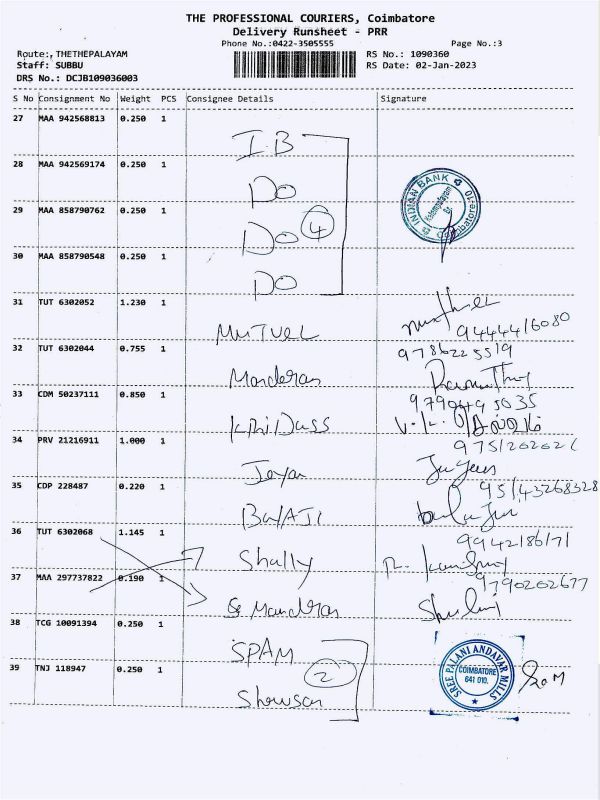 THE PROFESSIONAL COURIERS, Coimbatore
Delivery Runsheet - PRR
Phone No.:0422-3505555
Page No.:3
Route:, THETHEPALAYAM
RS No.: 1090360
Staff: SUBBU
RS Date: 02-Jan-2023
DRS No.: DCJB109036003
S No Consignment No Weight PCS Consignee Details Signature
27 MAA 942568813 0.250 1
I.B
28 MAA 942569174 0.250 1
Do
INDIAN BANK
Coimbatore-10
29 MAA 858790762 0.250 1
Do 4
30 MAA 858790548 0.250 1
Do
31 TUT 6302052 1.230 1
Mutuel
9444416080
32 TUT 6302044 0.755 1
9786225519
Manderan
33 CDM 50237111 0.850 1
9790495035
34 PRV 21216911 1.000 1
Jeyan
35 CDP 228487 0.220 1
95143268328
BalAJI
36 TUT 6302068 1.145 1
9942186171
Shally
37 MAA 297737822 0.190 1
9790202677
Manderan
38 TCG 10091394 0.250 1
SPAM
SREE PALANI ANDAVAR MILLS
COIMBATORE
641 010.
39 TNJ 118947 0.250 1
2